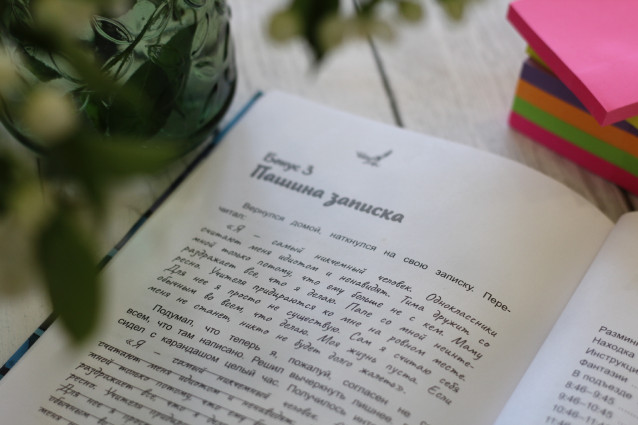 Бонус 3
Пашина записка
Вернулся домой, наткнулся на свою записку. Пере-
читал:
«Я — самый никчемный человек. Одноклассники
считают меня идиотом и ненавидят. Тима дружит со
мной только потому, что ему больше не с кем. Маму
раздражает все, что я делаю. Папе со мной неинте-
ресно. Учителя придираются ко мне на ровном месте.
Для нее я просто не существую. Сам я считаю себя
обычным во всем, что делаю. Моя жизнь пуста. Если
меня не станет, никто не будет долго жалеть».
Подумал, что теперь я, пожалуй, согласен не со
всем, что там написано. Решил вычеркнуть лишнее.
сидел с карандашом целый час. Получилось
«Я — самый никчемный человек.
считают меня идиотом и ненавидят.
мной только потому, что ему
раздражает все, что я
ресно. Учителя
Для нее я
обычным
меня не
Размин
Находка
Инструкци
Фантазии
В подъезде
8:46–9:45
9:46–10:45
10:46–11
11:46